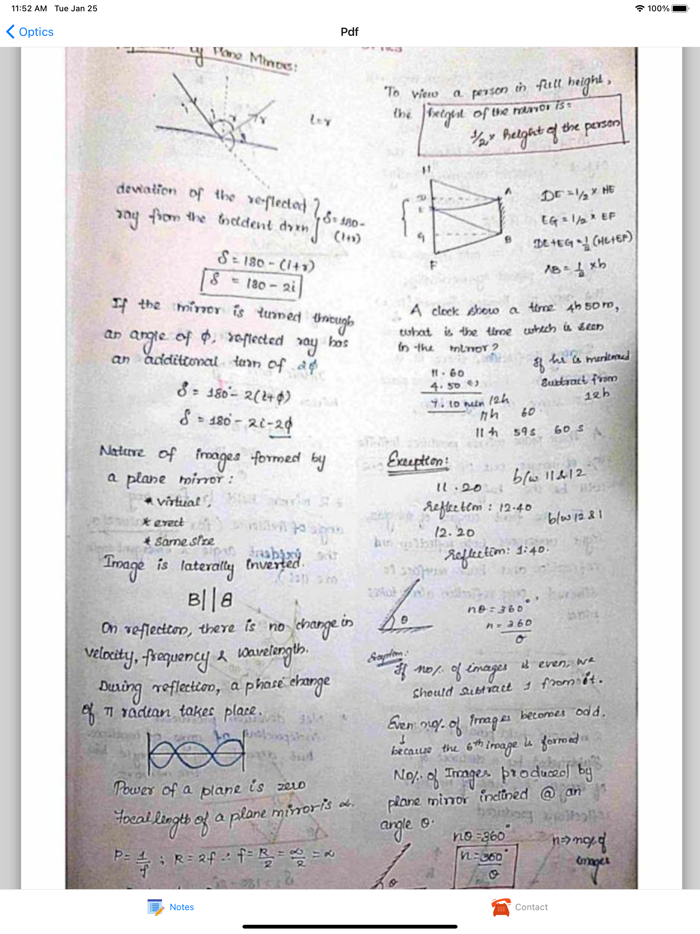 11:52 AM Tue Jan 25
100%
Optics
Pdf
by Plane Mirrors:
i=r
deviation of the reflected
ray from the incident drxn } δ=180-
(i+r)
δ = 180 - (i+r)
δ = 180 - 2i
If the mirror is turned through
an angle of φ, reflected ray has
an additional turn of 2φ
δ = 180° - 2(i+φ)
δ = 180° - 2i - 2φ
Nature of images formed by
a plane mirror:
* virtual,
* erect
* same size
Image is laterally inverted.
B||
On reflection, there is no change in
velocity, frequency & wavelength.
During reflection, a phase change
of π radian takes place.
Power of a plane is zero
Focal length of a plane mirror is ∝.
P = 1/f ; R = 2f ∴ f = R/2 = ∝/2 = ∝
To view a person in full height,
the height of the mirror is =
1/2 x height of the person
H
D
E
G
F
A
B
DE = 1/2 x HE
EG = 1/2 x EF
DE+EG = 1/2 (HE+EF)
AB = 1/2 x h
A clock show a time 4h 50m,
what is the time which is seen
in the mirror?
11.60
4.50 (-)
7.10 min
If hr is mentioned
subtract from
12h
12h
11h 60
11h 59s 60s
Exception:
b/w 11 & 12
11.20
Reflection : 12.40
b/w 12 & 1
12.20
Reflection: 1:40.
θ
nθ = 360°
n = 360/θ
If no/. of images is even, we
should subtract 1 from it.
Even no/. of images becomes odd.
because the 6th image is formed
No/. of Images produced by
plane mirror inclined @ an
angle θ.
nθ = 360°
n = 360°/θ
n => no/. of
images
θ
Notes
Contact